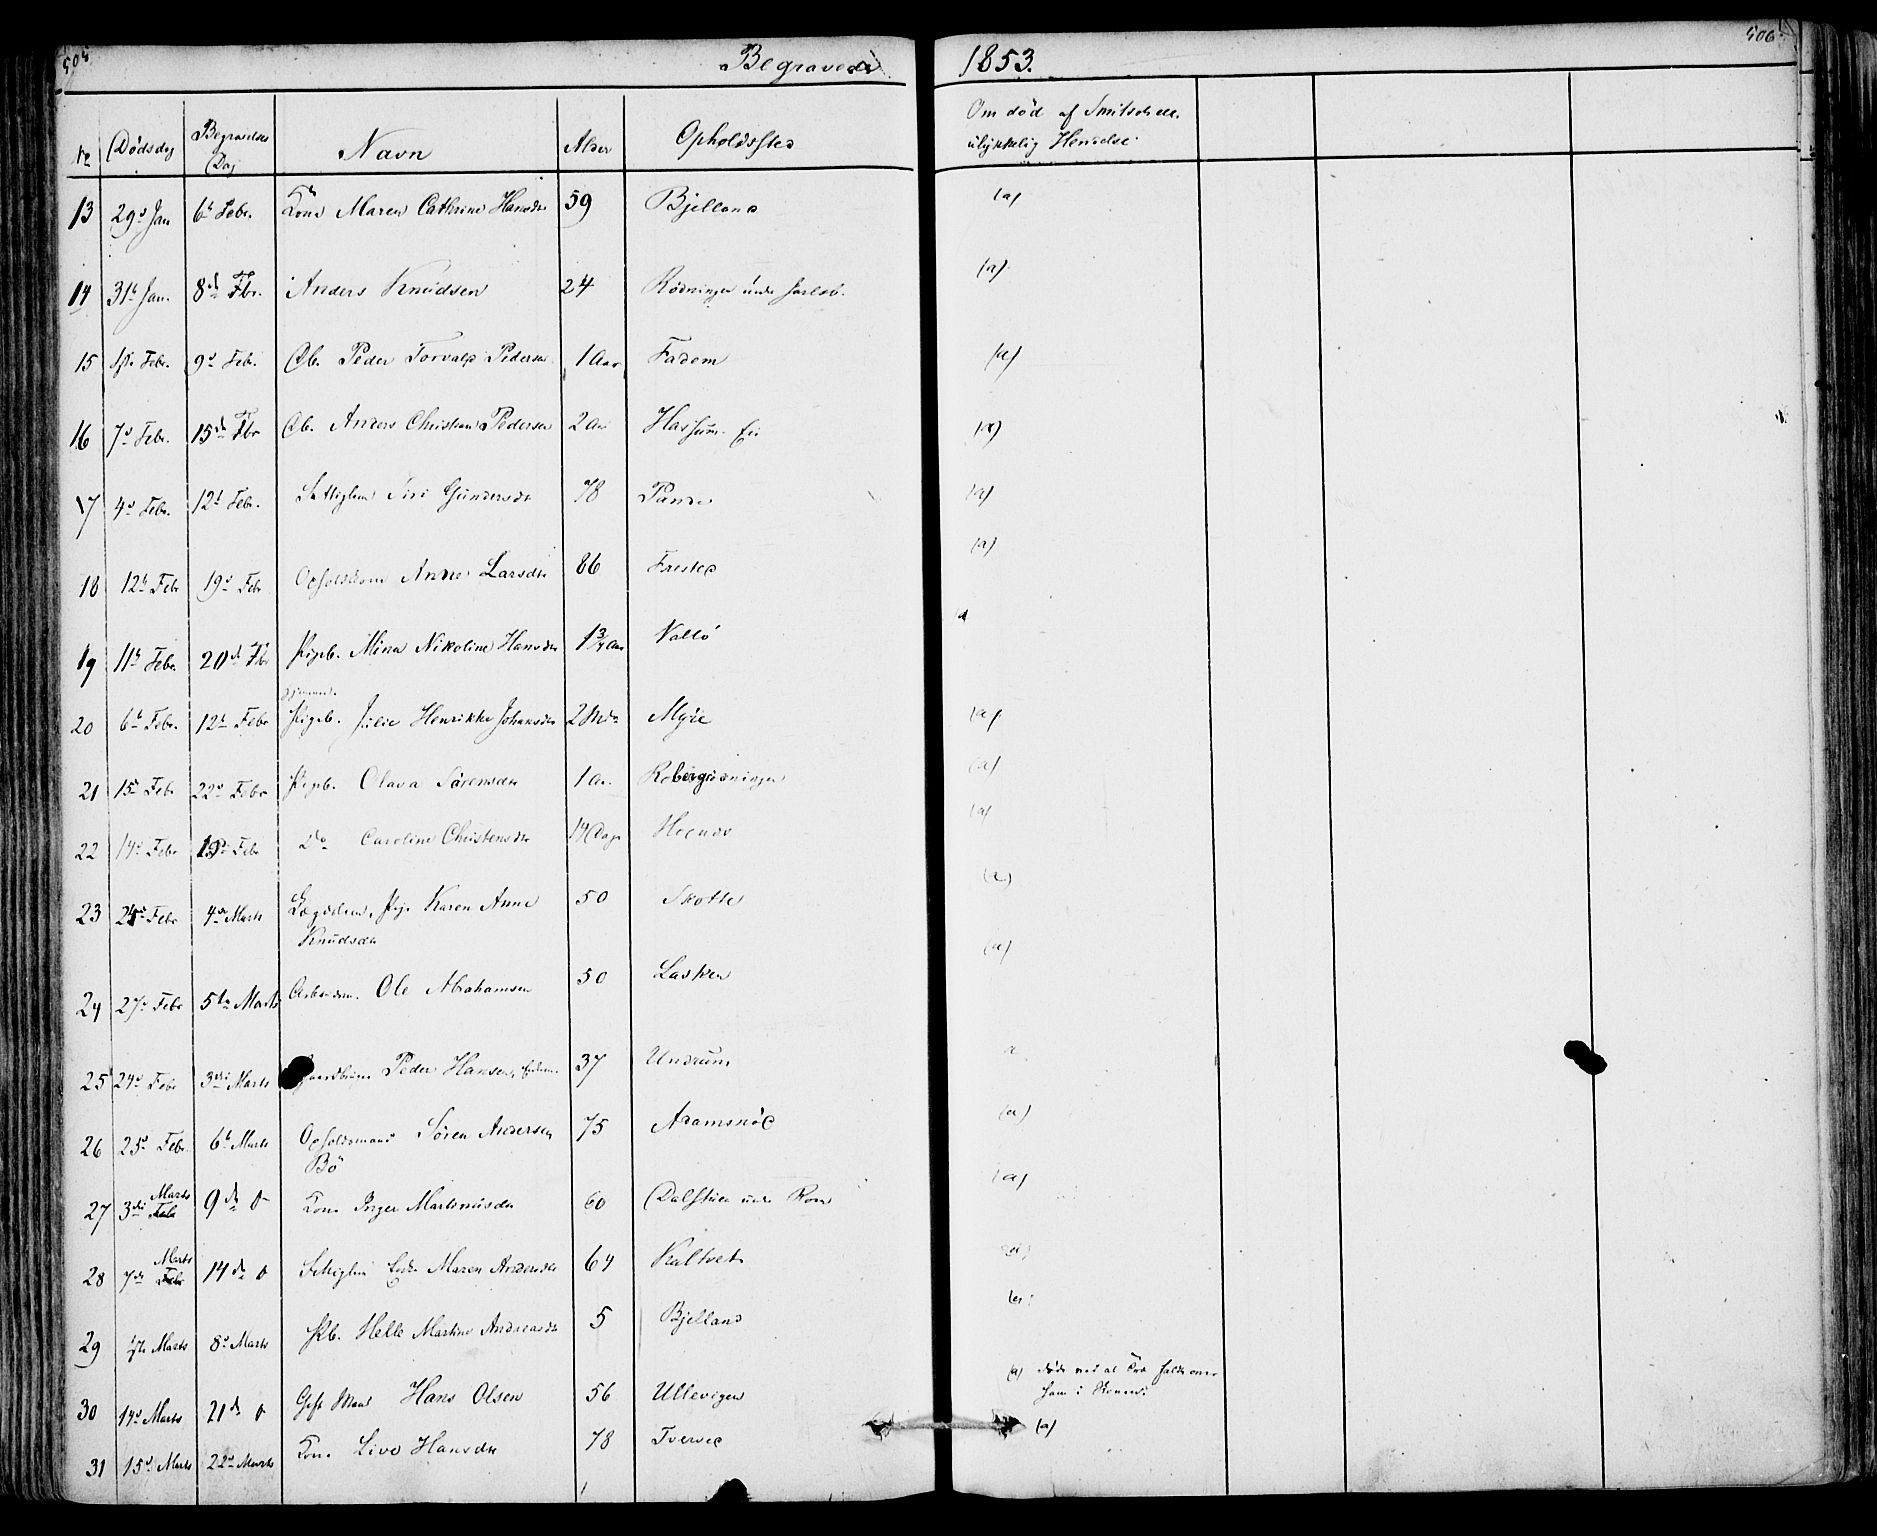 505
Begravede
1853.
506
No Dødsdag Begravelses Dag Navn Alder Opholdssted
Om død af Smitsot ell. ulykkelig Hendelse
13 29de Jan 6te Febr. Kone Maren Cathrine Hansdtr 59 Bjelland (a)
14 31te Jan. 8de Fbr. Anders Knudsen 24 Rødningen under Jarlsb. (a)
15 1ste Febr. 9de Febr. Db. Peder Torvald Pedersen 1 Aar Fadom (a)
16 7de Febr. 15de Fbr Db. Anders Christian Pedersen 2 Aar Hassum Eie (a)
17 4de Febr. 12te Febr. Siri Gundersdtr 78 (a)
18 12te Febr 19de Febr Anne Larsdtr 86 Frested (a)
19 11te Febr. 20de Fbr Pigeb. Mina Nikoline Hansdtr 1 3/4 Aar Vallø a
20 6te Febr. 12te Febr hjemmed. Pigeb. Julie Henrikke Johansdtr 2 Mdr Myre (a)
21 15de Febr 22de Febr Pigeb. Olava Sørensdtr 1 Aar Robergrødningen (a)
22 14de Febr 19de Febr Do Caroline Christensdtr 14 Dage (a)
23 24de Febr 4de Marts Lægdslem, Pige Karen Anne 50 Skotte (a)
Knudsdtr
24 27de Febr 5te Marts Arbeidsm. Ole Abrahamsen 50 Lasken (a)
25 24de Febr 3die Marts Gaardbrug. Peder Hansen, 37 Undrum a
26 25de Febr. 6te Marts Søren Andersen 75 Adamsrød (a)
Bø
27 3die Marts 9de o Kone Inger Martinusdtr 60 Dalstuen under Rom (a)
28 7de Marts 14de o Enke Maren Andersdtr 64 Kaltvet (a)
29 Marts 8de Marts Pb. Helle Martine Andreasdtr 5 Bjelland (a)
30 14de Marts 21de o Gift Mand Hans Olsen 56 Ullevigen (a) døde ved at Træ faldt over
ham i Skoven.
31 15de Marts 22de Marts Kone Live Hansdtr 78 Tvered (a)